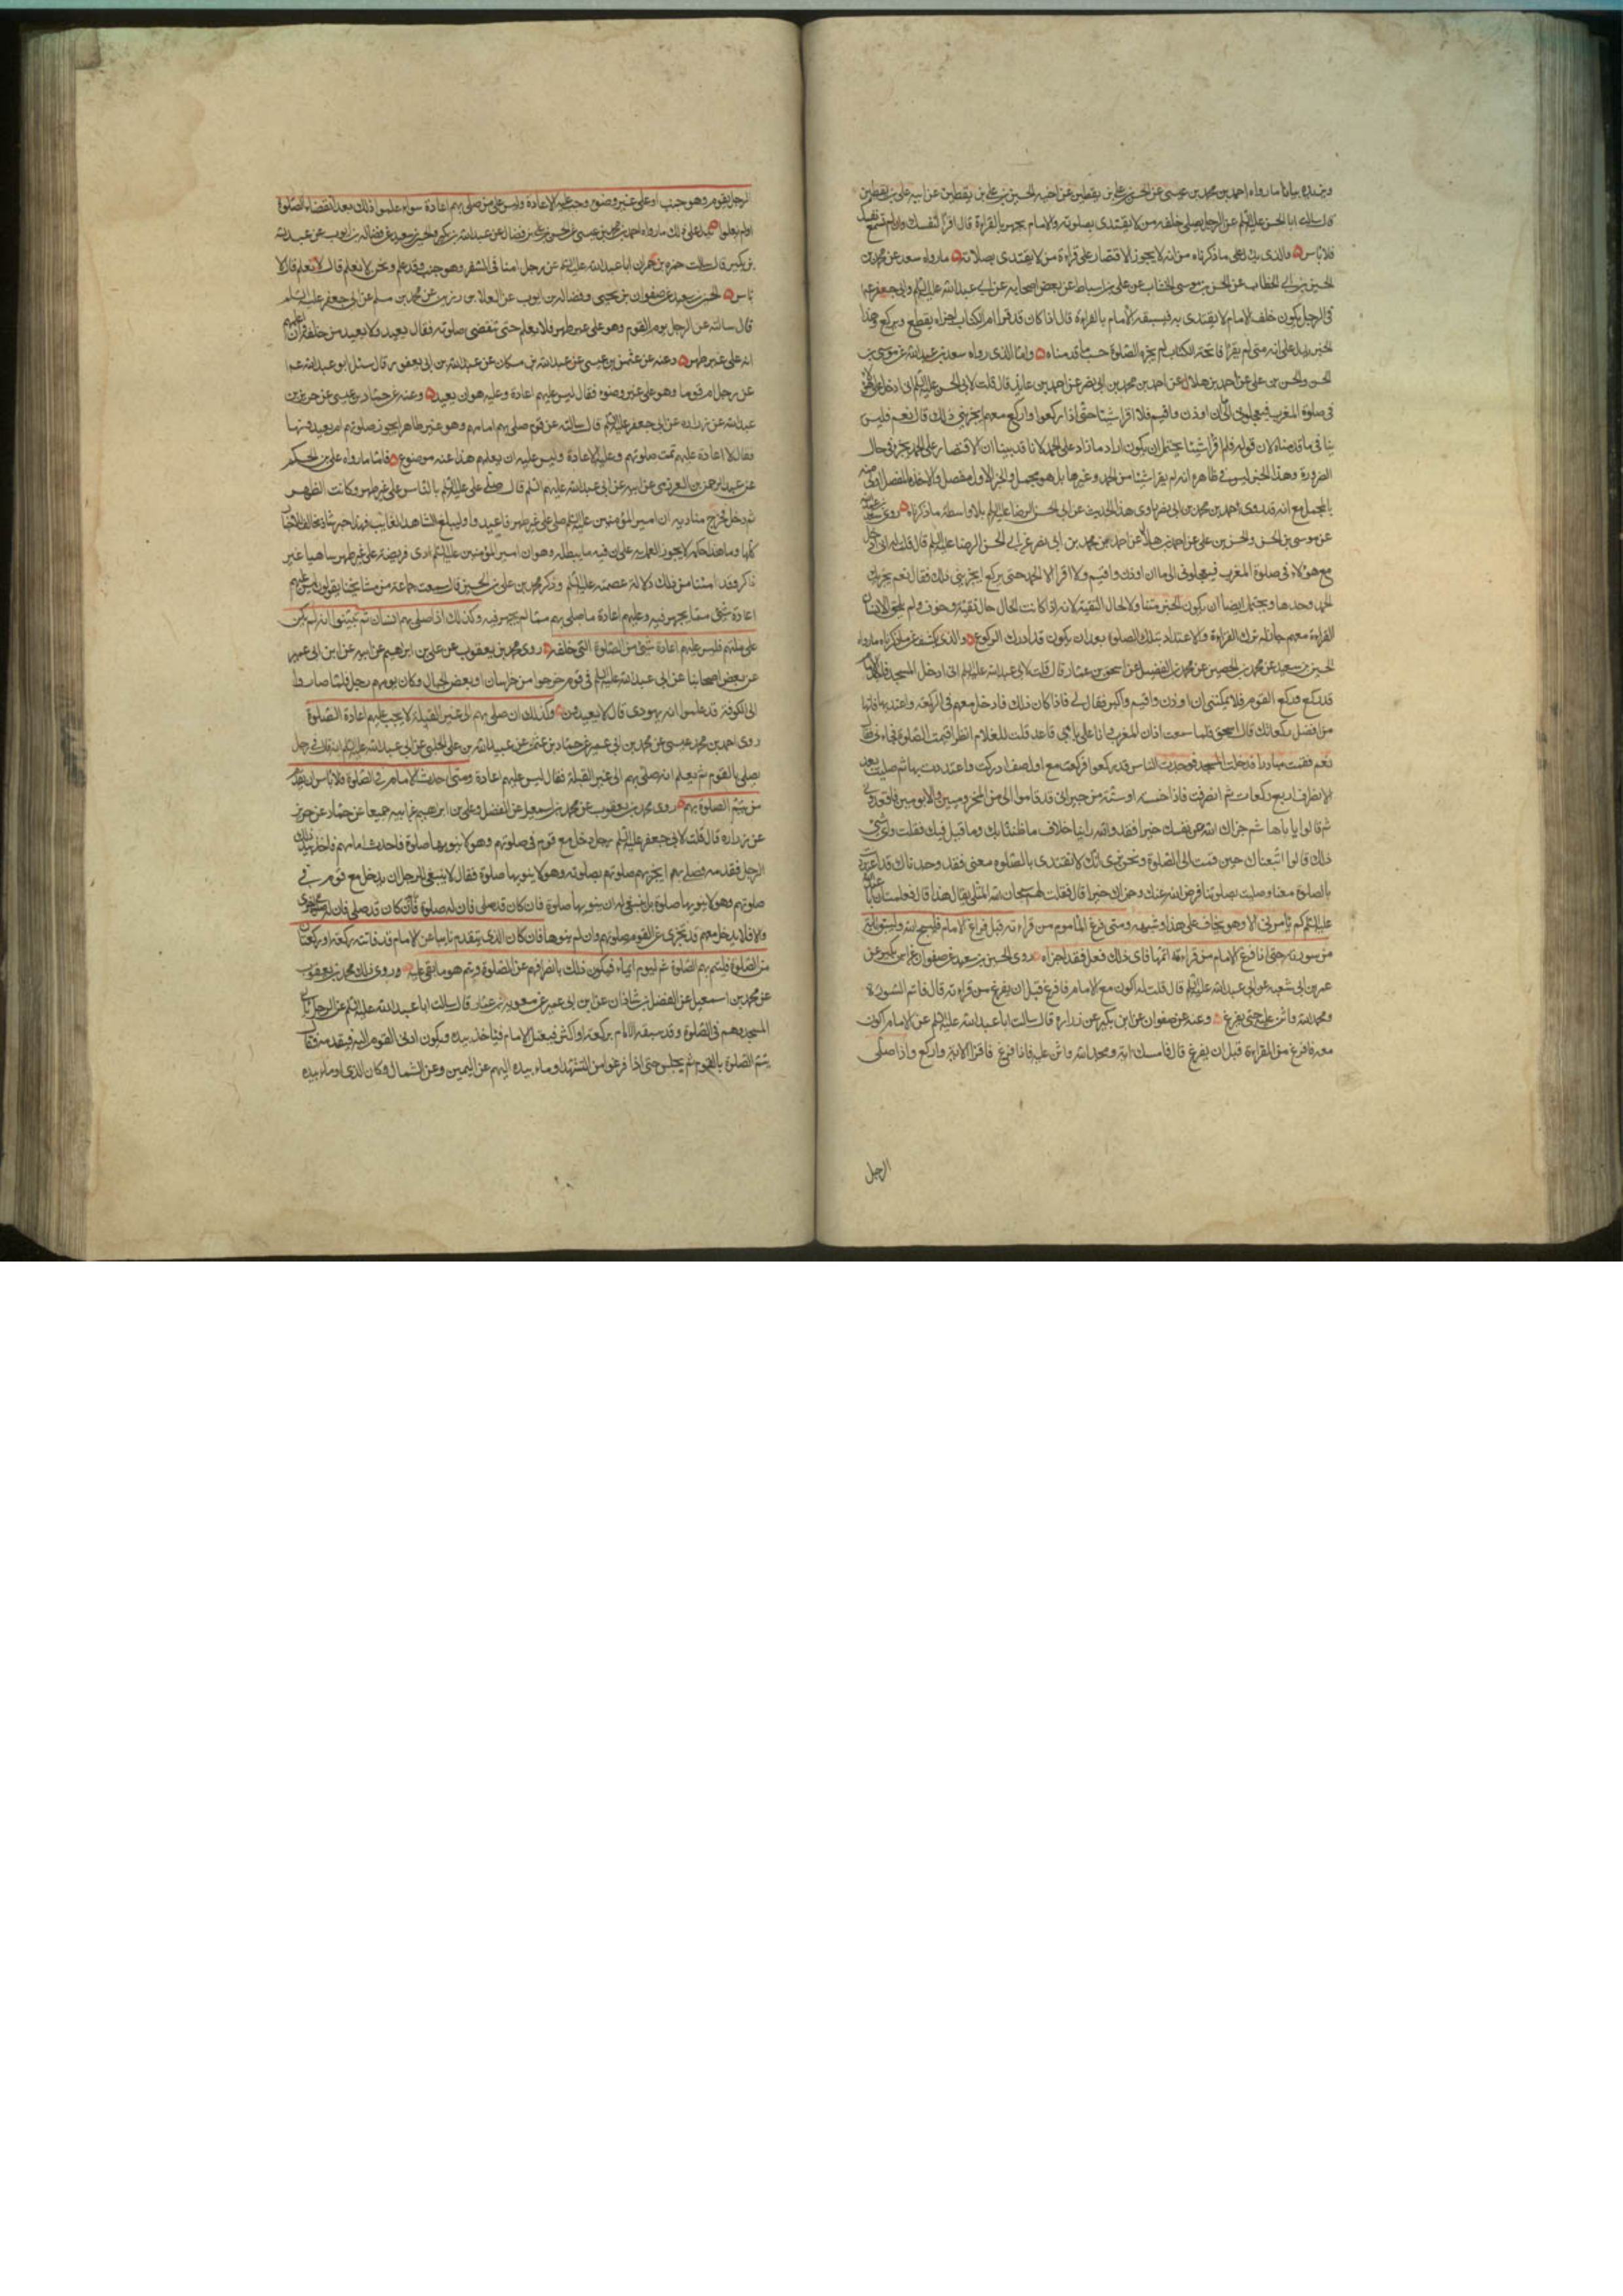 ويزيده بيانا ما رواه احمد بن محمد بن عيسى عن الحسن بن علي بن يقطين عن اخيه الحسين بن علي بن يقطين عن ابيه علي بن يقطين
قال سالت ابا الحسن عليه السلم عن الرجل يصلي خلف من لا يقتدى بصلوته والامام يجهر بالقراءة قال اقرأ لنفسك وان لم تسمع نفسك
فلا باس والذي يدل على ما ذكرناه من انه لا يجوز الاقتصار على قراءة من لا يقتدى بصلاته ما رواه سعد عن محمد بن
الحسين بن ابي الخطاب عن الحسن بن موسى الخشاب عن علي بن اسباط عن بعض اصحابه عن ابي عبد الله عليه السلم وابي جعفر عـ
في الرجل يكون خلف الامام لا يقتدى به فيسبقه الامام بالقراءة قال اذا كان قد قرأ ام الكتاب اجزاه يقطع ويركع وهذا
الخبر يدل على انه متى لم يقرأ فاتحة الكتاب لم يجزه الصلوة حسبما قدمناه واما الذي رواه سعد بن عبد الله عن موسى بن
الحسن والحسن بن علي عن احمد بن هلال عن احمد بن محمد بن ابي نصر عن احمد بن عايذ قال قلت لابي الحسن عليه السلم اني ادخل مع هؤلاء
في صلوة المغرب فيعجلوني الى ان اوذن واقيم فلا اقرا شيئا حتى اذا ركعوا واركع معهم ايجزيني ذلك قال نعم فليس
ينافي ما قدمناه لان قوله فلم اقرأ شيئا يحتمل ان يكون اراد ما زاد على الحمد لانا قد بينا ان الاقتصار على الحمد يجزي في حال
الضرورة وهذا الخبر ليس في ظاهره انه لم يقرا شيئا من الحمد وغيرها بل هو مجمل والخبر الاول مفصل والاخذ بالمفصل اولى منه
بالمجمل مع انه قد روى احمد بن محمد بن ابي نصر راوي هذا الحديث عن ابي الحسن الرضا عليه السلم بلا واسطة ما ذكرناه روى سعد بن عبد الله
عن موسى بن الحسن والحسن بن علي عن احمد بن هلال عن احمد بن محمد بن ابي نصر عن ابي الحسن الرضا عليه السلم قال قلت له اني ادخل
مع هؤلاء في صلوة المغرب فيعجلوني الى ما ان اوذن واقيم ولا اقرا الا الحمد حتى يركع ايجزيني ذلك فقال نعم يجزيك
الحمد وحدها ويحتمل ايضا ان يكون الخبر متناولا لحال التقية لانه اذا كانت الحال حال تقية وخوف ولم يلحق الانسان
القراءة معهم جاز له ترك القراءة والاعتداد بتلك الصلوة بعد ان يكون قد ادرك الركوع والذي يكشف عن ما ذكرناه ما رواه
الحسين بن سعيد عن محمد بن الحصين عن محمد بن الفضيل عن اسحق بن عمار قال قلت لابي عبد الله عليه السلم اني ادخل المسجد فاجد الامام
قد ركع وركع القوم فلا يمكنني ان اوذن واقيم واكبر فقال لي فاذا كان ذلك فادخل معهم في الركعة واعتد بها فانها
من افضل ركعاتك قال اسحق فلما سمعت اذان المغرب وانا على بابي قاعد قلت للغلام انظر اقيمت الصلوة فجاءني فقال
نعم فقمت مبادرا فدخلت المسجد فوجدت الناس قد ركعوا فركعت مع اول صف ادركت واعتددت بها ثم صليت بعد
الانصراف اربع ركعات ثم انصرفت فاذا خمسة او ستة من جيراني قد قاموا الى من المخزوميين والامويين فاقعدوني
ثم قالوا يا با هاشم جزاك الله عن نفسك خيرا فقد والله راينا خلاف ما ظننا بك وما قيل فيك فقلت واي شي
ذلك قالوا اتبعناك حين قمت الى الصلوة ونحن نرى انك لا تقتدي بالصلوة معنا فقد وجدناك قد اعتددت
بالصلوة معنا وصليت بصلوتنا فرضي الله عنك وجزاك خيرا قال فقلت لهم سبحان الله المثلي يقال هذا قال فعلمت ان ابا عبد الله
عليه السلم لم يامرني الا وهو يخاف علي هذا وشبهه ومتى فرغ الماموم من قراءته قبل فراغ الامام فليسبح الله وليستبق اية
من سورته حتى اذا فرغ الامام من قراءته اتمها فاي ذلك فعل فقد اجزاه روى الحسين بن سعيد عن صفوان عن ابن بكير عن
عمر بن ابي شعبة عن ابي عبد الله عليه السلم قال قلت له اكون مع الامام فافرغ قبل ان يفرغ من قراءته قال فاتم السورة
ومجد الله واثن عليه حتى يفرغ وعنه عن صفوان عن ابن بكير عن زرارة قال سالت ابا عبد الله عليه السلم عن الامام اكون
معه فافرغ من القراءة قبل ان يفرغ قال فامسك اية ومجد الله واثن عليه فاذا فرغ فاقرا الاية واركع واذا صلى
الرجل
الرجل بقوم وهو جنب او على غير وضوء وجب عليه الاعادة وليس على من صلى بهم اعادة سواء علموا ذلك بعد انقضاء الصلوة
او لم يعلموا يدل على ذلك ما رواه احمد بن محمد بن عيسى عن الحسن بن علي بن فضال عن عبد الله بن بكير والحسين بن سعيد عن فضالة بن ايوب عن عبد الله
بن بكير قال سالت حمزة بن حمران ابا عبد الله عليه السلم عن رجل امنا في السفر وهو جنب وقد علم ونحن لا نعلم قال لا نعلم قال لا
باس الحسين بن سعيد عن صفوان بن يحيى وفضالة بن ايوب عن العلاء بن رزين عن محمد بن مسلم عن ابي جعفر عليه السلم
قال سالته عن الرجل يوم القوم وهو على غير طهر فلا يعلم حتى تنقضي صلوته فقال يعيد ولا يعيد من خلفه وان اعلمهم
انه على غير طهر وعنه عن عثمن بن عيسى عن عبد الله بن مسكان عن عبد الله بن ابي يعفور قال سئل ابو عبد الله عـ
عن رجل ام قوما وهو على غير وضوء فقال ليس عليهم اعادة وعليه هو ان يعيد وعنه عن حماد بن عيسى عن حريز بن
عبد الله عن زرارة عن ابي جعفر عليه السلم قال سالته عن قوم صلى بهم امامهم وهو غير طاهر ايجوز صلوتهم ام يعيدونها
فقال لا اعادة عليهم تمت صلوتهم وعليه الاعادة وليس عليه ان يعلمهم هذا عنه موضوع فاما ما رواه علي بن الحكم
عن عبد الرحمن بن العرزمي عن ابيه عن ابي عبد الله عليهم السلم قال صلى علي عليه السلم بالناس على غير طهر وكانت الظهر
ثم دخل فخرج مناديه ان امير المؤمنين عليه السلم صلى على غير طهر فاعيدوا وليبلغ الشاهد الغايب فهذا خبر شاذ مخالف للاخبار
كلها وما هذا حكمه لا يجوز العمل به على ان فيه ما يبطله وهو ان امير المؤمنين عليه السلم ادى فريضة على غير طهر ساهيا غير
ذاكر وقد امننا من ذلك دلالة عصمته عليه السلم وذكر محمد بن علي بن الحسين قال سمعت جماعة من مشايخنا يقولون ليس عليهم
اعادة شيء مما يجهر فيه وعليهم اعادة ما صلى بهم مما لم يجهر فيه وكذلك اذا صلى بهم انسان ثم تبينوا انه لم يكن
على ملتهم فليس عليهم اعادة شيء من الصلوة التي خلفه روى محمد بن يعقوب عن علي بن ابرهيم عن ابيه عن ابن ابي عمير
عن بعض اصحابنا عن ابي عبد الله عليه السلم في قوم خرجوا من خراسان او بعض الجبال وكان يومهم رجل فلما صاروا
الى الكوفة قد علموا انه يهودي قال لا يعيدون وكذلك ان صلى بهم الى غير القبلة لا يجب عليهم اعادة الصلوة
روى احمد بن محمد عيسى عن محمد بن ابي عمير عن حماد بن عثمن عن عبيد الله بن علي الحلبي عن ابي عبد الله عليه السلم انه قال في رجل
يصلي بالقوم ثم يعلم انه صلى بهم الى غير القبلة فقال ليس عليهم اعادة ومتى احدث الامام في الصلوة فلا باس ان يقدم
من يتم الصلوة بهم روى محمد بن يعقوب عن محمد بن اسمعيل عن الفضل وعلي بن ابرهيم عن ابيه جميعا عن حماد عن حريز
عن زرارة قال قلت لابي جعفر عليه السلم رجل دخل مع قوم في صلوتهم وهو لا ينويها صلوة فاحدث امامهم فاخذ بيد ذلك
الرجل فقدمه وصلى بهم ايجزيهم صلوتهم بصلوته وهو لا ينويها صلوة فقال لا ينبغي للرجل ان يدخل مع قوم في
صلوتهم وهو لا ينويها صلوة بل ينبغي له ان ينويها صلوة فان كان قد صلى فان له صلوة اخرى
والا فلا يدخل معهم قد تجزي عن القوم صلوتهم وان لم ينوها فان كان الذي يتقدم نايبا عن الامام قد فاتته ركعة او ركعتان
من الصلوة فليتم بهم الصلوة ثم ليوم ايماء فيكون ذلك بانصرافهم عن الصلوة ويتم هو ما بقي عليه وروى ذلك محمد بن يعقوب
عن محمد بن اسمعيل عن الفضل بن شاذان عن ابن ابي عمير عن معوية بن عمار قال سالت ابا عبد الله عليه السلم عن الرجل ياتي
المسجد وهم في الصلوة وقد سبقه الامام بركعة او اكثر فيعتل الامام فياخذ بيده ويكون ادنى القوم اليه فيقدمه فقال
يتم الصلوة بالقوم ثم يجلس حتى اذا فرغوا من التشهد اوماء بيده اليهم عن اليمين وعن الشمال وكان الذي اوماء بيده